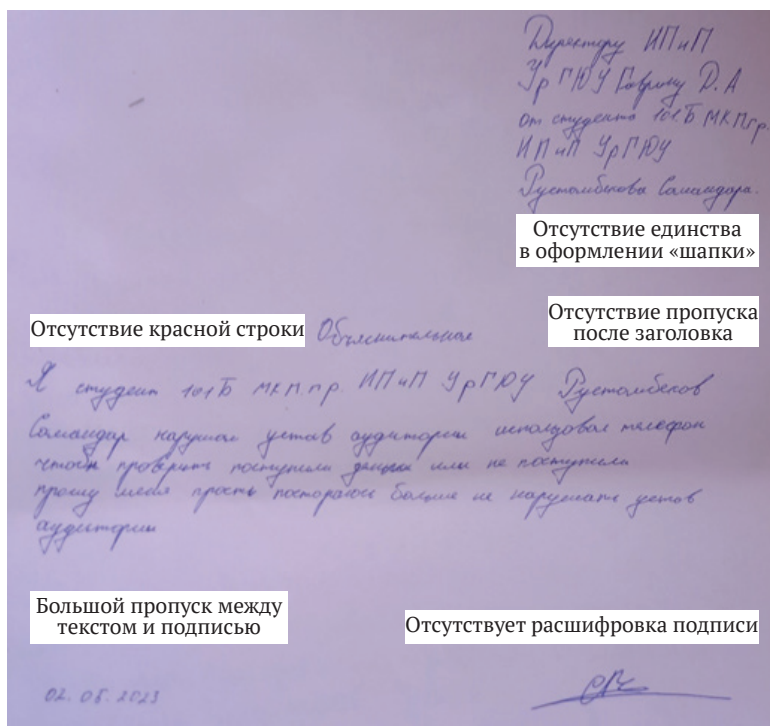 Директору ИПиП
УрГЮУ Гаврину Д.А
от студента 101.Б МКП гр.
ИПиП УрГЮУ
Рустомбекова Самандара.
Отсутствие единства
в оформлении «шапки»
Отсутствие красной строки
Объяснительная
Отсутствие пропуска
после заголовка
Я студент 101Б МКП.гр. ИПиП УрГЮУ Рустомбеков
Самандар нарушил устав аудитории использовал телефон
чтоби проверить поступили деньги или не поступили
прошу меня прость постораюс больше не нарушать устав
аудитории
Большой пропуск между
текстом и подписью
Отсутствует расшифровка подписи
02.05.2023